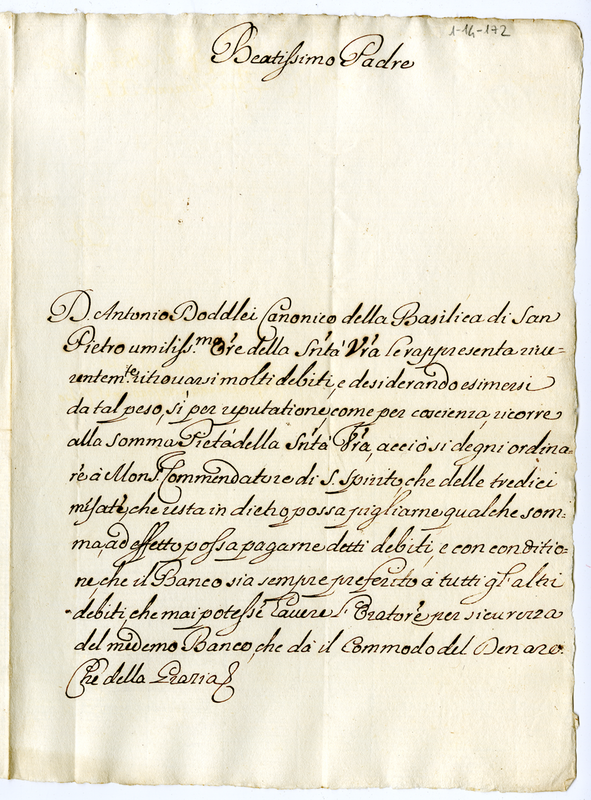 1-14-172
Beatissimo Padre
D. Antonio Doddlei Canonico della Basilica di San
Pietro umiliss.mo Ore della Sntà Vra le rappresenta riue-
rentem.te ritrouarsi molti debiti, e desiderando esimersi
da tal peso, sì per reputatione, come per coscienza, ricorre
alla somma Pietà della Sntà Vra, acciò si degni ordina-
re à Mons. Commendatore di S. Spirito, che delle tredici
mesate, che resta in dietro possa pigliarne qualche som-
ma, ad effetto possa pagarne detti debiti, e con conditio-
ne, che il Banco sia sempre preferito à tutti gl'altri
debiti, che mai potesse hauere l'Oratore per sicurezza
del medemo Banco, che dà il Commodo del Denaro.
Che della Grazia